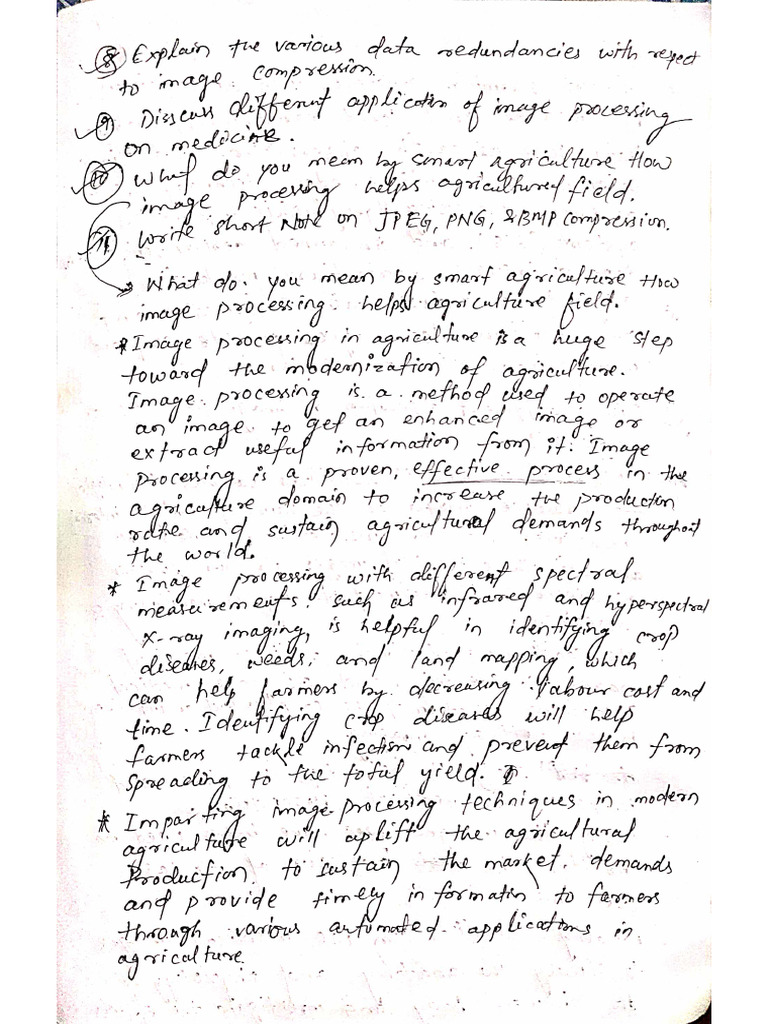 8 Explain the various data redundancies with respect
to image compression.
9 Disscuss different application of image processing
on medicine.
10 What do you mean by smart agriculture How
image processing helps agricultured field.
11 Write short Note on JPEG, PNG, & BMP compression.
What do you mean by smart agriculture How
image processing helps agriculture field.
* Image processing in agriculture is a huge step
toward the modernization of agriculture.
Image processing is a method used to operate
an image to get an enhanced image or
extract useful information from it. Image
processing is a proven, effective process in the
agriculture domain to increase the production
rate and sustain agricultural demands throughout
the world.
* Image processing with different spectral
measurements such as infrared and hyperspectral
X-ray imaging, is helpful in identifying crop
diseases, weeds, and land mapping, which
can help farmers by decreasing labour cost and
time. Identifying crop diseases will help
farmers tackle infection and prevent them from
spreading to the total yield.
* Imparting image processing techniques in modern
agriculture will uplift the agricultural
Production to sustain the market demands
and provide timely information to farmers
through various automated applications in
agriculture.